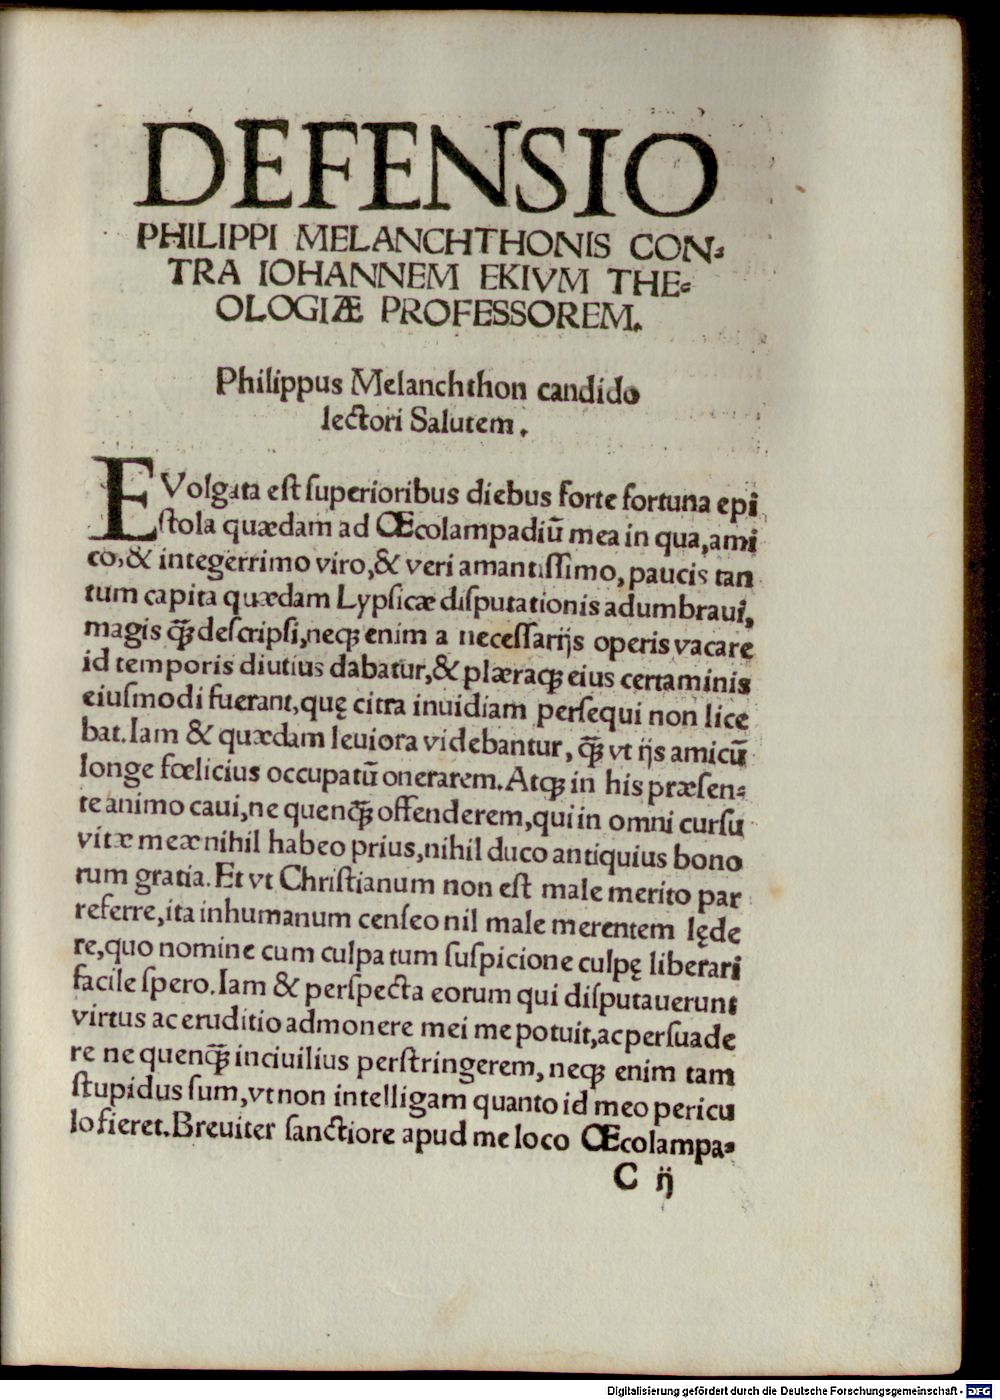 DEFENSIO
PHILIPPI MELANCHTHONIS CON⸗
TRA IOHANNEM EKIVM THE⸗
OLOGIÆ PROFESSOREM.
Philippus Melanchthon candido
lectori Salutem.
EVolgata est superioribus diebus forte fortuna epi
stola quædam ad Œcolampadiũ mea in qua, ami
co, & integerrimo viro, & veri amantissimo, paucis tan
tum capita quædam Lypsicæ disputationis adumbraui,
magis q̃ꝫ descripsi, neqꝫ enim a necessarijs operis vacare
id temporis diutius dabatur, & plæraqꝫ eius certaminis
eiusmodi fuerant, quę citra inuidiam persequi non lice
bat. Iam & quædam leuiora videbantur, q̃ꝫ vt ijs amicũ
longe fœlicius occupatũ onerarem. Atqꝫ in his præsen⸗
te animo caui, ne quenq̃ꝫ offenderem, qui in omni cursu
vitæ meæ nihil habeo prius, nihil duco antiquius bono
rum gratia. Et vt Christianum non est male merito par
referre, ita inhumanum censeo nil male merentem lęde
re, quo nomine cum culpa tum suspicione culpę liberari
facile spero. Iam & perspecta eorum qui disputauerunt
virtus ac eruditio admonere mei me potuit, ac persuade
re ne quenq̃ꝫ inciuilius perstringerem, neqꝫ enim tam
stupidus sum, vt non intelligam quanto id meo pericu
lo fieret. Breuiter sanctiore apud me loco Œcolampa⸗
C ij
Digitalisierung gefördert durch die Deutsche Forschungsgemeinschaft - DFG